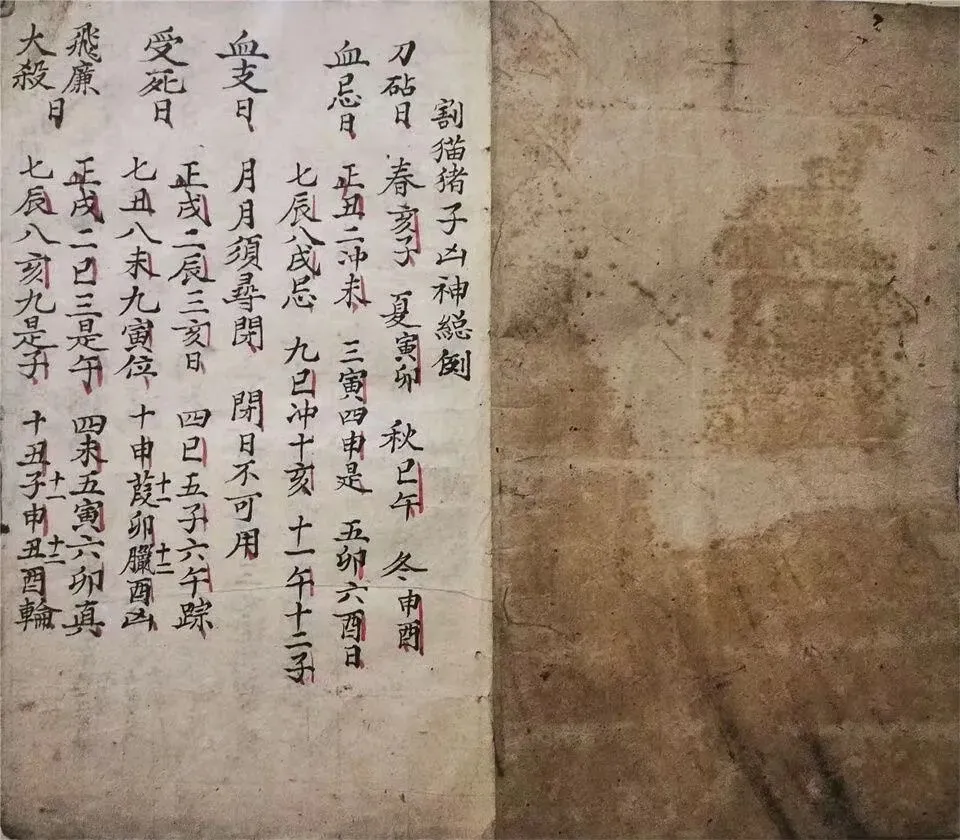 割猫猪子凶神緫例
刀砧日 春亥子 夏寅卯 秋巳午 冬申酉
血忌日 正丑二冲未 三寅四申是 五卯六酉日
七辰八戌忌 九巳冲十亥 十一午十二子
血支日 月月須尋閉 閉日不可用
受死日 正戌二辰三亥日 四巳五子六午踪
七丑八未九寅位 十申葭十一卯臘十二酉凶
飛廉大殺日 正戌二巳三是午 四未五寅六卯真
七辰八亥九是子 十丑子十一申丑十二酉輪